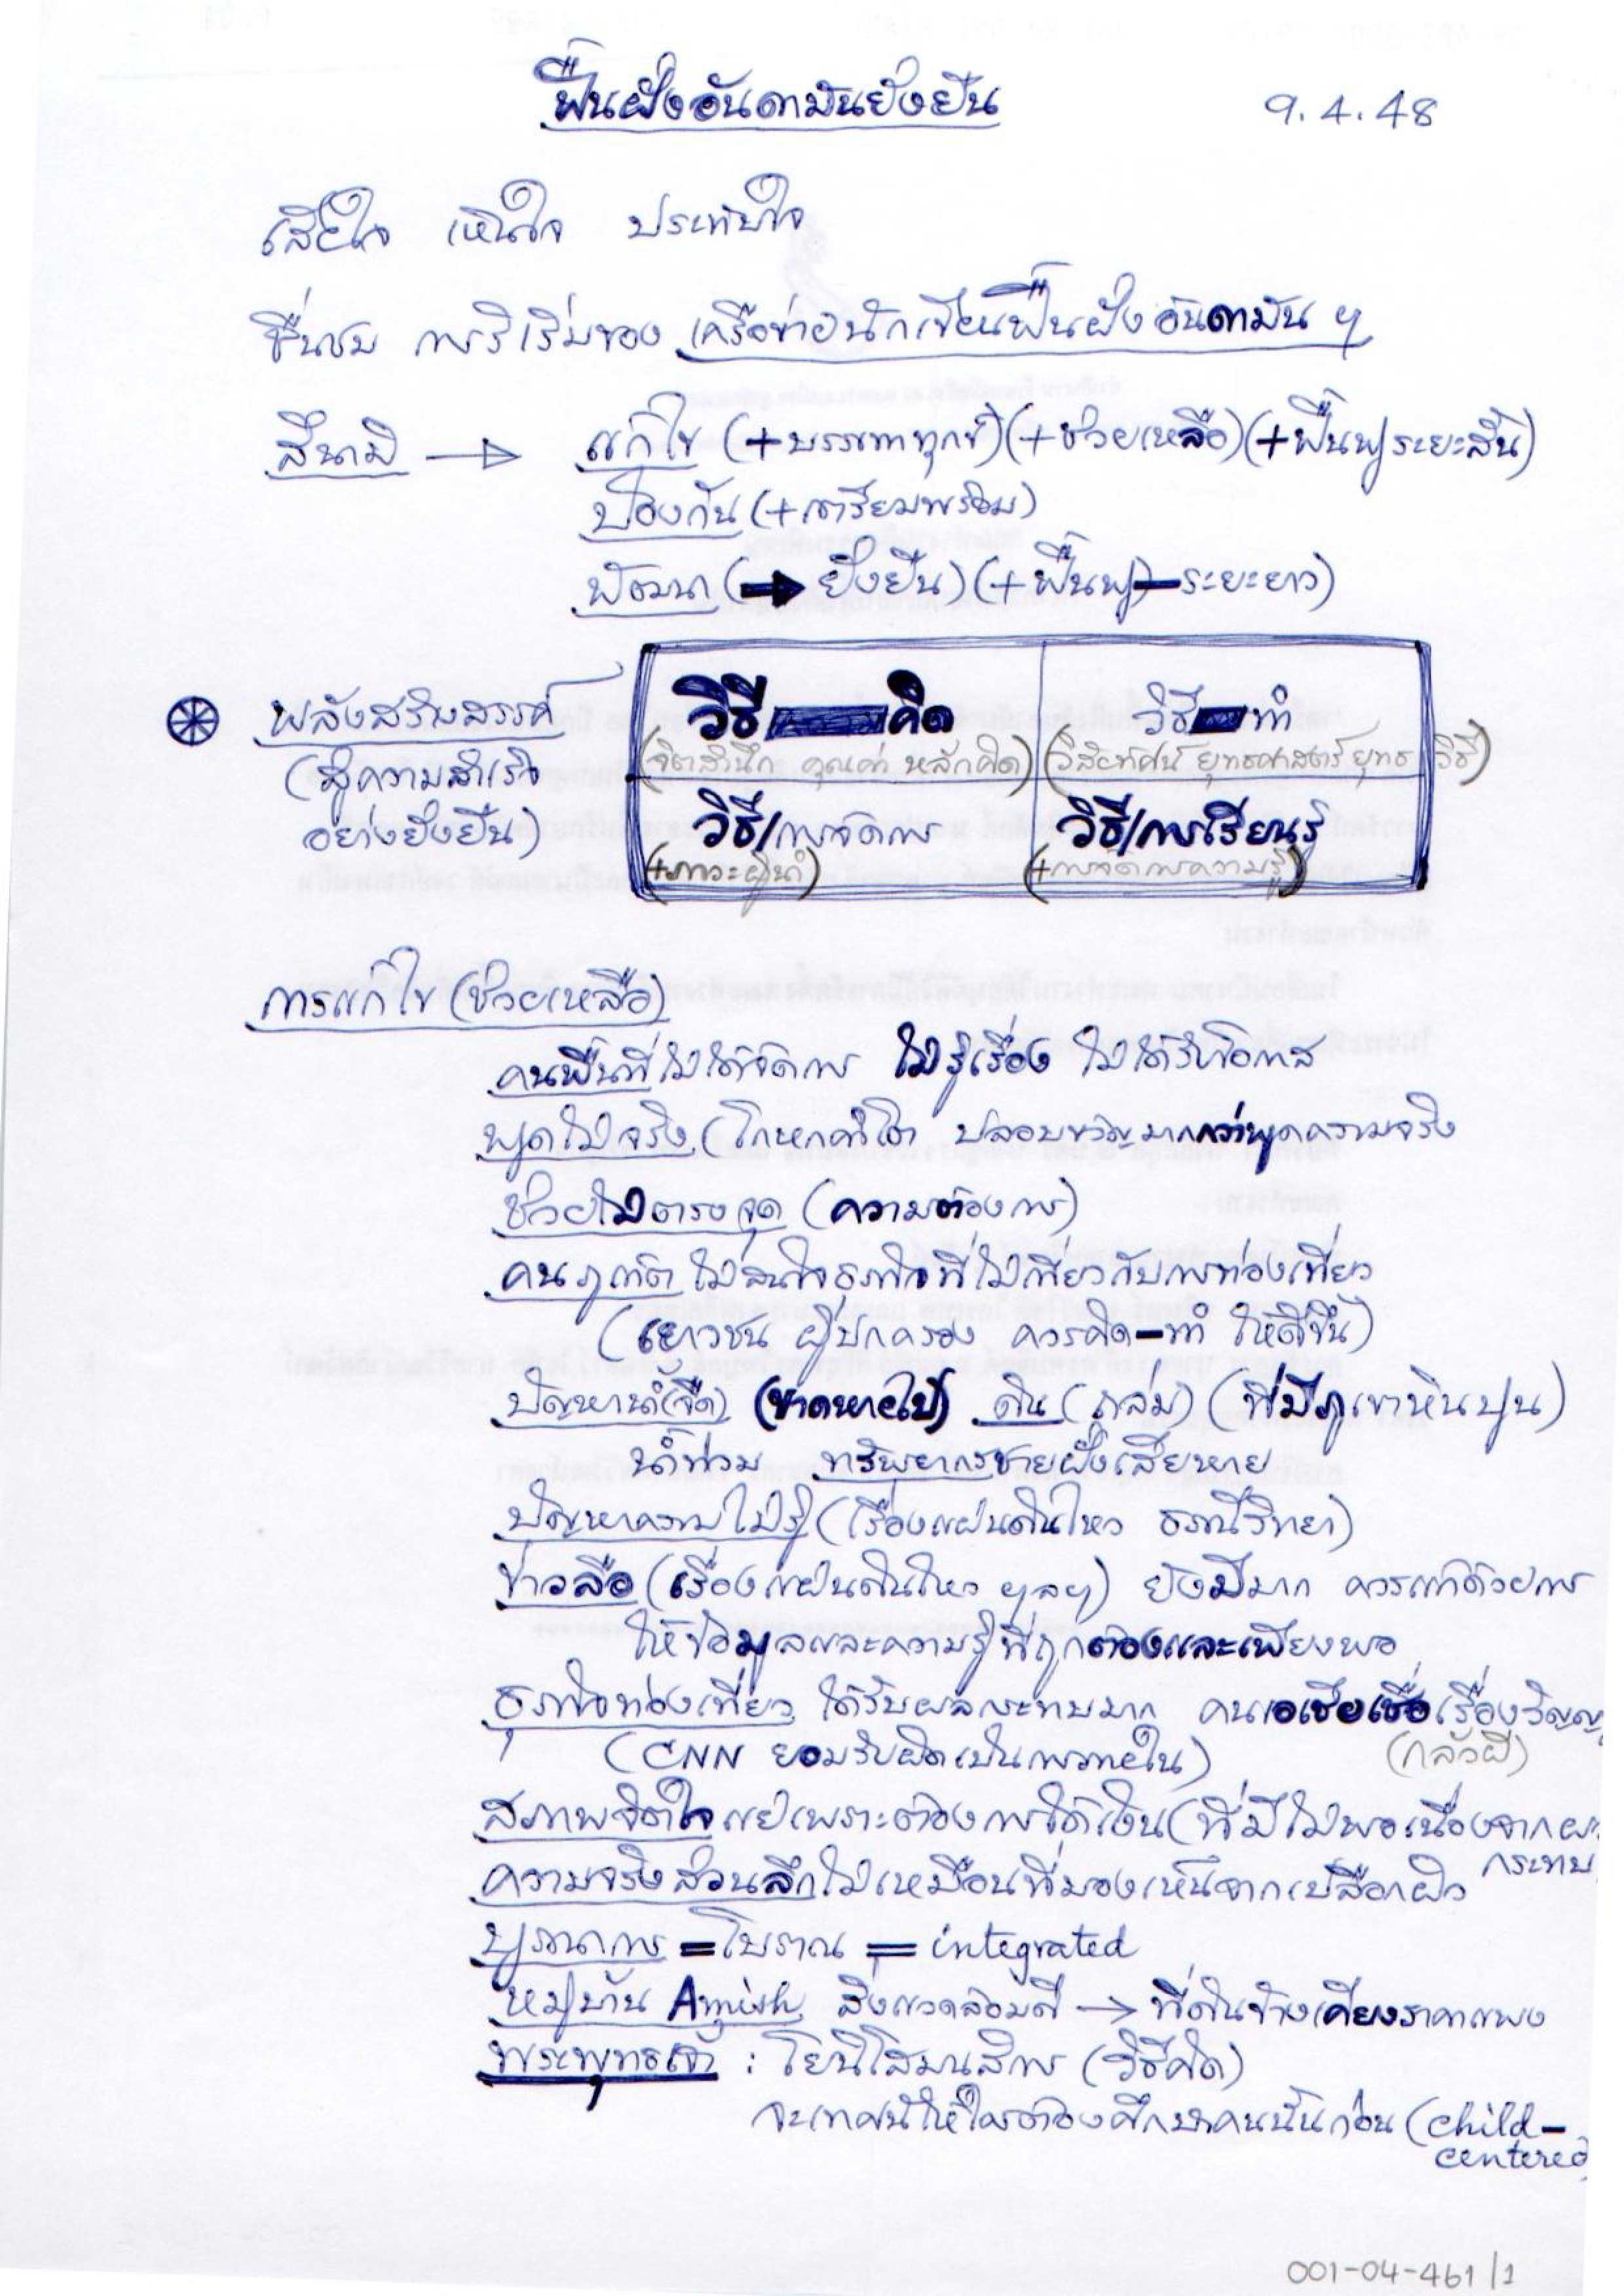 ฟื้นฝั่งอันดามันยั่งยืน
9.4.48
เสียใจ เห็นใจ ประทับใจ
ชื่นชม การริเริ่มของ เครือข่ายนักเขียนฟื้นฝั่งอันดามัน ฯ
สึนามิ → แก้ไข (+บรรเทาทุกข์)(+ช่วยเหลือ)(+ฟื้นฟูระยะสั้น)
ป้องกัน (+เตรียมพร้อม)
พัฒนา (→ ยั่งยืน) (+ฟื้นฟู–ระยะยาว)
พลังสร้างสรรค์
(สู่ความสำเร็จ
อย่างยั่งยืน)
วิธี คิด
(จิตสำนึก คุณค่า หลักคิด)
วิธี ทำ
(วิสัยทัศน์ ยุทธศาสตร์ ยุทธวิธี)
วิธี/การจัดการ
(+ภาวะผู้นำ)
วิธี/การเรียนรู้
(+การจัดการความรู้)
การแก้ไข (ช่วยเหลือ)
คนพื้นที่ไม่ได้จัดการ ไม่รู้เรื่อง ไม่ได้รับโอกาส
พูดไม่จริง (โกหกคำโต ปลอบขวัญมากกว่าพูดความจริง
ช่วยไม่ตรงจุด (ความต้องการ)
คนภูเก็ต ไม่สนใจธุรกิจที่ไม่เกี่ยวกับการท่องเที่ยว
(เยาวชน ผู้ปกครอง ควรคิด–ทำ ให้ดีขึ้น)
ปัญหาน้ำ(จืด) (ขาดหายไป) ดิน (ถล่ม) (ที่มีภูเขาหินปูน)
น้ำท่วม ทรัพยากรชายฝั่งเสียหาย
ปัญหาความไม่รู้ (เรื่องแผ่นดินไหว ธรณีวิทยา)
ข่าวลือ (เรื่องแผ่นดินไหว ฯลฯ) ยังมีมาก ควรแก้ด้วยการ
ให้ข้อมูลและความรู้ที่ถูกต้องและเพียงพอ
ธุรกิจท่องเที่ยว ได้รับผลกระทบมาก คนเอเชียเชื่อเรื่องวิญญ
(กลัวผี)
(CNN ยอมรับผิดเป็นการภายใน)
สภาพจิตใจแย่เพราะต้องการได้เงิน (ที่มีไม่พอเนื่องจากผล
กระทบ
ความจริงส่วนลึกไม่เหมือนที่มองเห็นจากเปลือกผิว
บูรณาการ = โบราณ = integrated
หมู่บ้าน Amish สิ่งแวดล้อมดี → ที่ดินข้างเคียงราคาแพง
พระพุทธเจ้า : โยนิโสมนสิการ (วิธีคิด)
จะเทศน์ให้ใครต้องศึกษาคนนั้นก่อน (child-
centered
001-04-461/1